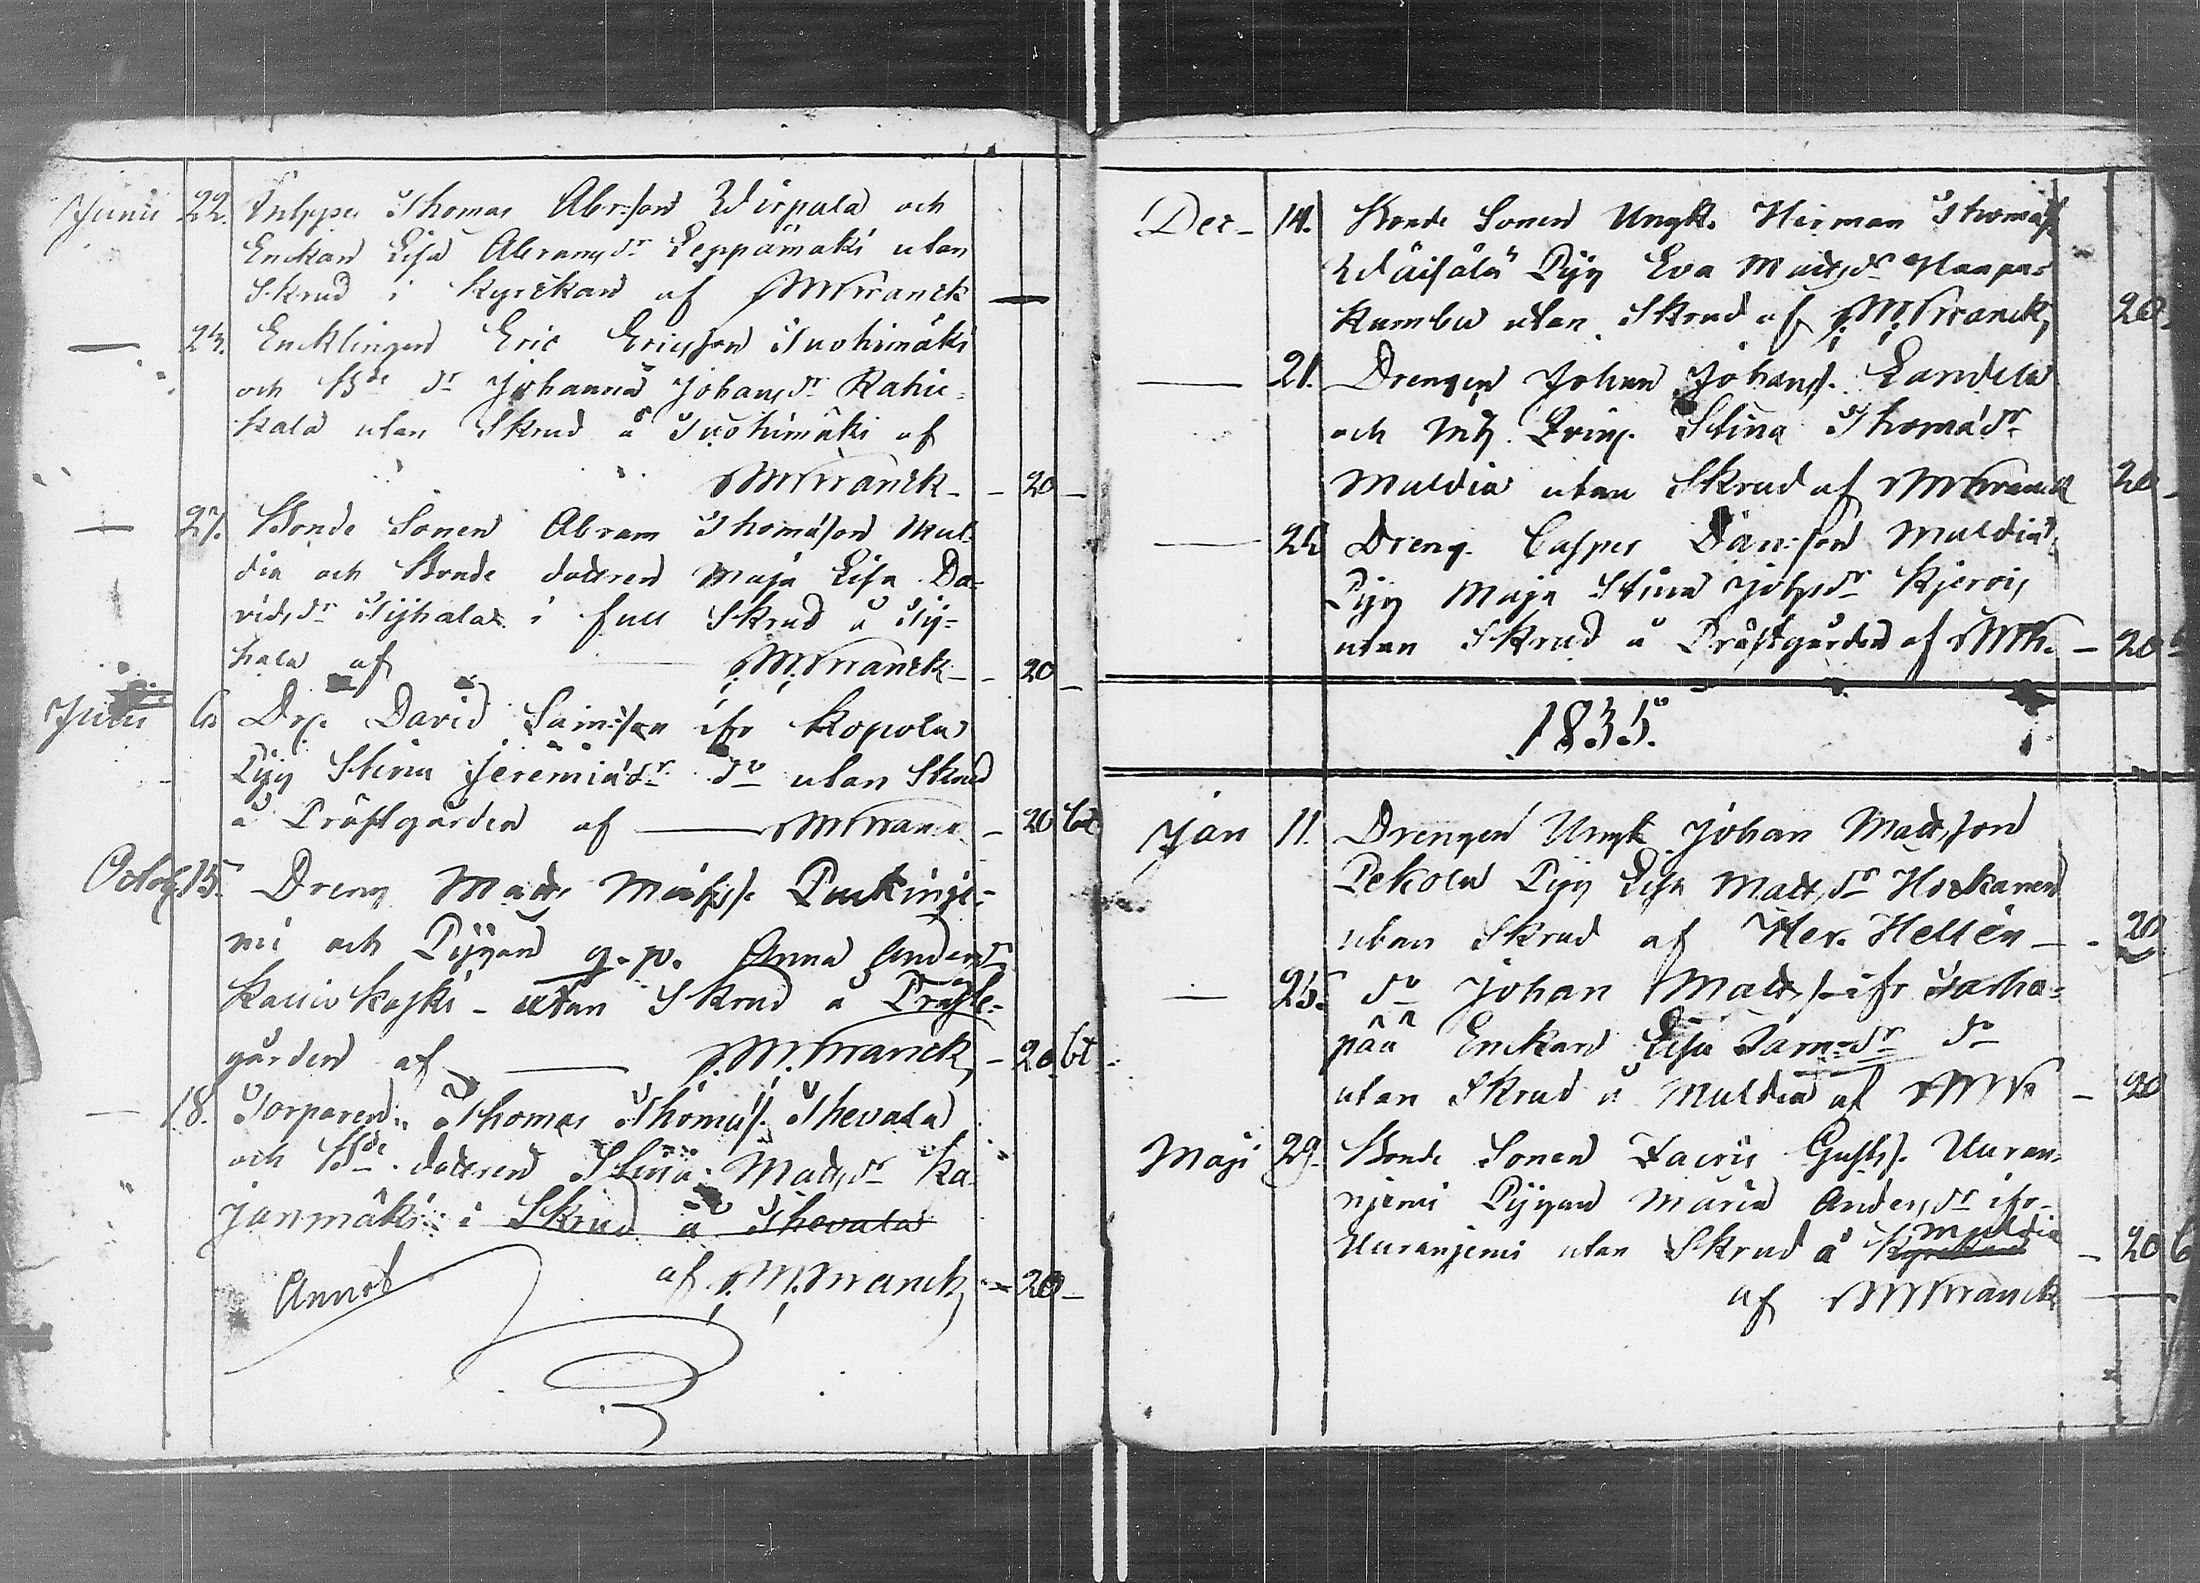 Junii 22. Inhyses Thomas Abr:son Wirpala och
Enckan Lisa Abramsdr Leppämäki utan
Skrud i Kyrckan af M Wranck —
— 24. Encklingen Eric Ericsson Tuohimäki
och Bde dr Johanna Johansdr Kahi-
kala utan Skrud å Tuohimäki af
M Wranck - - 20 -
— 27. Bonde Sonen Abram Thomasson Mul-
dia och Bonde dottren Maja Lisa Da-
vidsdr Tyhala i full Skrud å Ty-
hala af — M. Wranck - - 20 -
6 Dr. David Sam:son ifr Kopola
Pig Stina Jeremiædr do utan Skrud
å Prästgården af — M Wranck - 20 bt
Octob. 15. Dreng Matts Matss.
mi och Pigan q.p. Anna Andersdr
utan Skrud å Präste-
gården af — M. Wranck - 20 bt
— 18. Torparen Thomas Thomass. Thevala
och Bde dottren Stina Mattsdr Ka-
janmäki i Skrud å Thevala
af M. Wranck - 20 -
Annot
Dec - 14. Bonde Sonen Ungk. Herman Thomass
Wäisälä Pig Eva Mattsdr Haapa-
kumbu utan Skrud af M. Wranck, 20
— 21. Drengen Johan Johanss. Landela
och Stina Thomædr
Muldia utan Skrud af M Wranck 20 -
— Dreng. Casper Dan:son Muldia
Pig Maja Stina Johsdr
utan Skrud å Prästgården af MW. - 20
1835.
Jan 11. Drengen Ungk Johan Mattsson
Pekola Pig Lisa Mattsdr Hoskanen
utan Skrud af Her. Hellén - - 20
— 25. do Johan Matts. ifr Tarha-
pää Enckan Lisa Sam:dr do
utan Skrud å Muldia af MW - 20
Maji 29. Bonde Sonen Gusts. Uuran-
njemi Pigan Maria Andersdr ifr
Uuranjemi utan Skrud å Kyrckan Muldia - 20 b
af M Wranck —